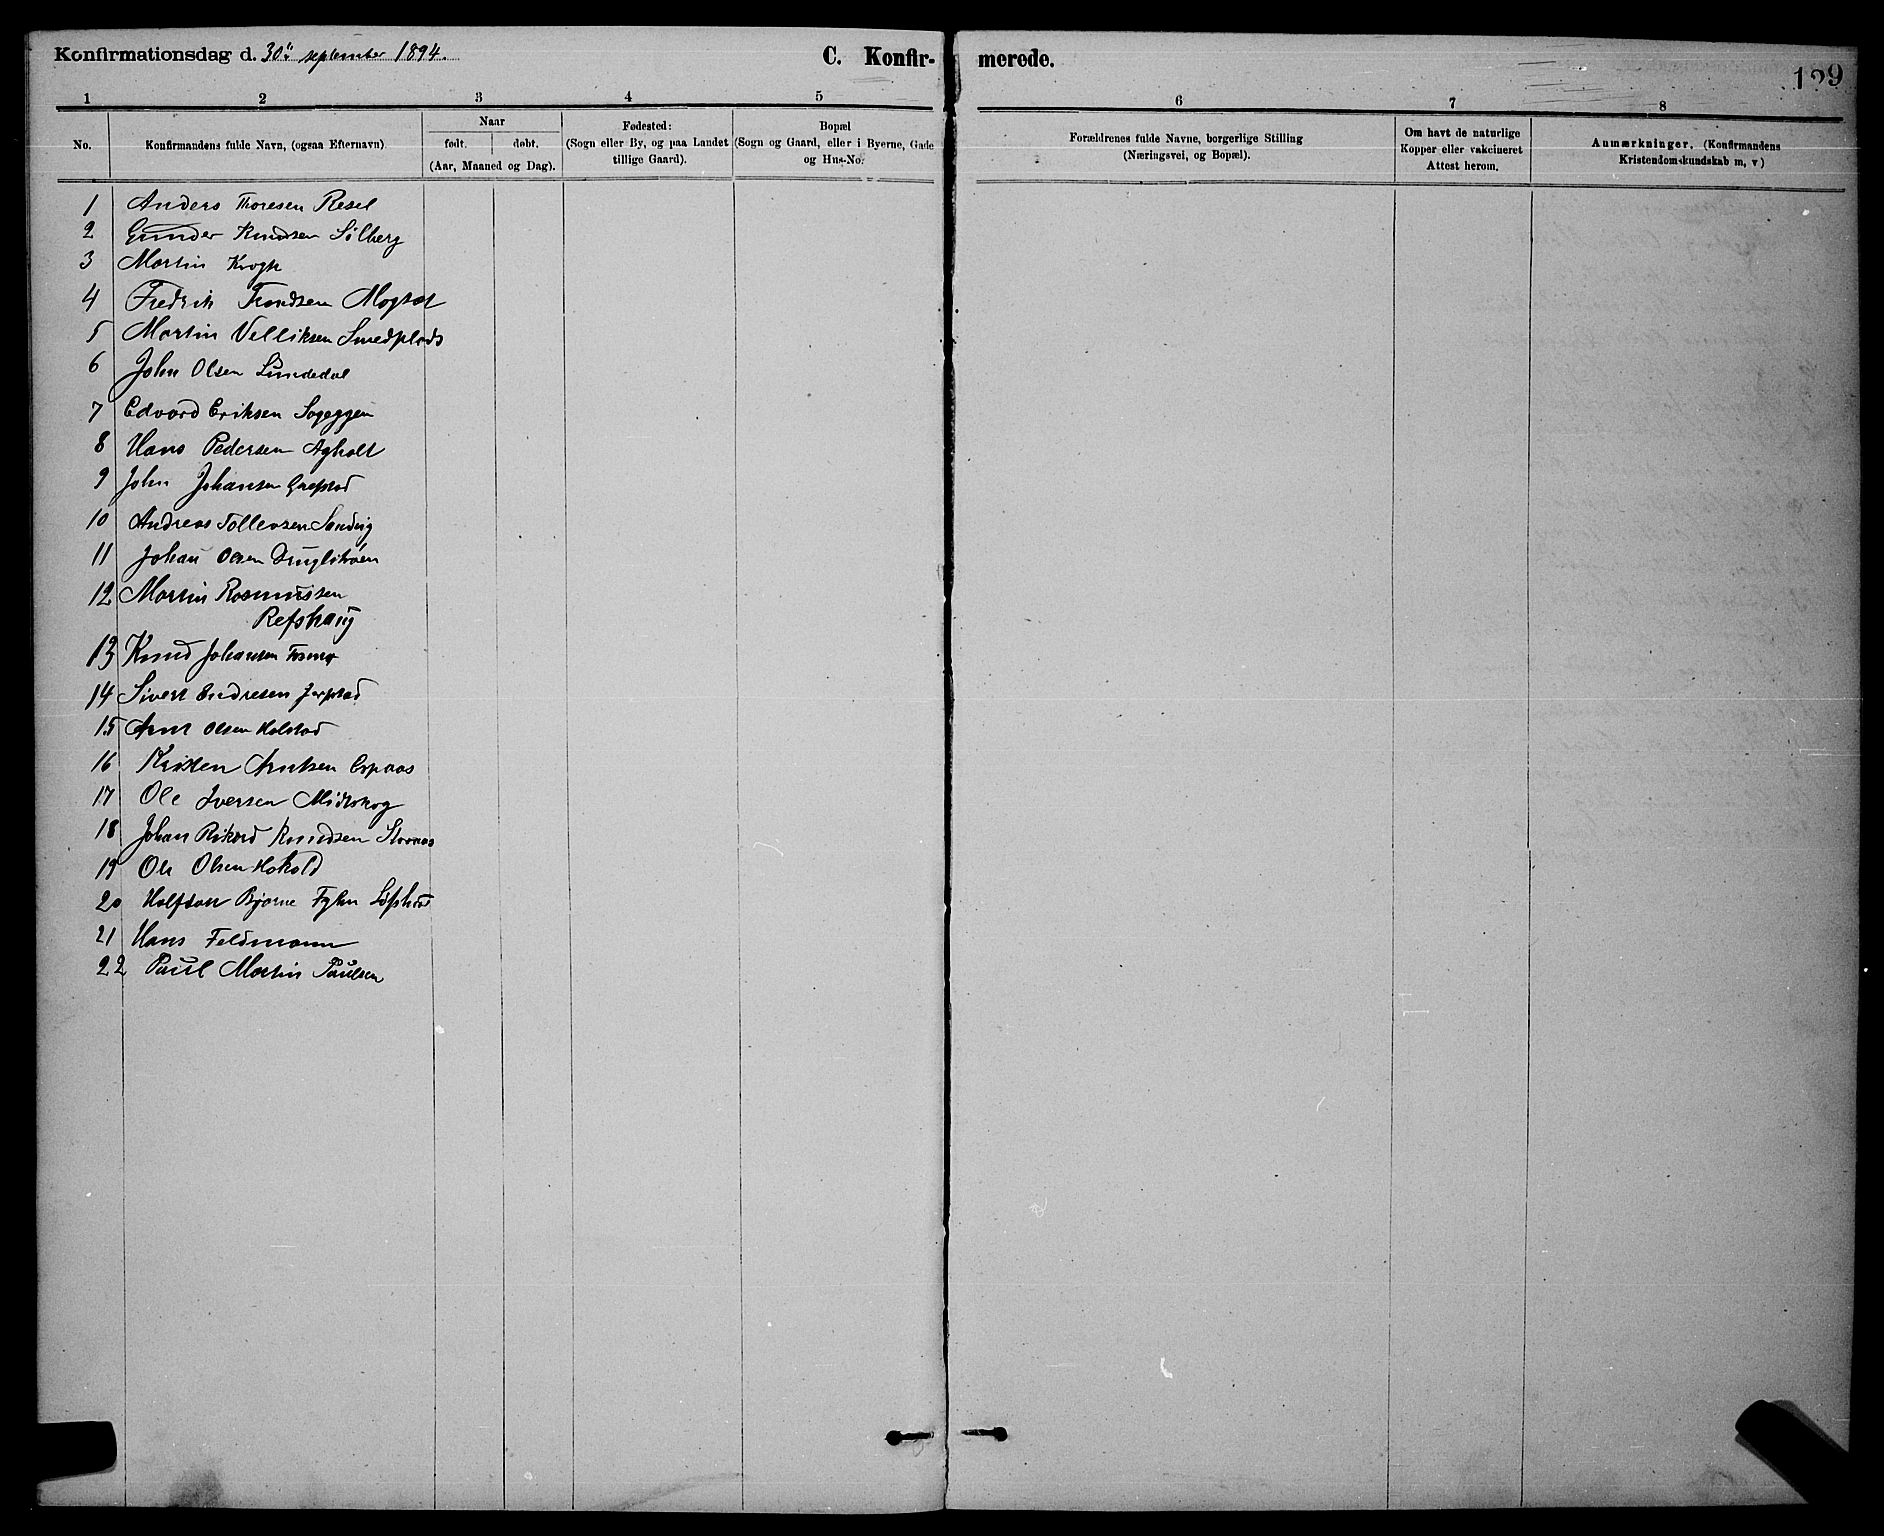 Konfirmationsdag d. 30te september 1894.
C. Konfir-
merede.
129
1 2 3 4 5 6 7 8
No.
Konfirmandens fulde Navn, (ogsaa Efternavn)
Naar
født. døbt.
(Aar, Maaned og Dag).
Fødested:
(Sogn eller By, og paa Landet
tillige Gaard).
Bopæl
(Sogn og Gaard, eller i Byerne, Gade
og Hus-No.
Forældrenes fulde Navne, borgerlige Stilling
(Næringsvei, og Bopæl).
Om havt de naturlige
Kopper eller vakcineret
Attest herom.
Anmærkninger. (Konfirmandens
Kristendomskundskab m, v)
1 Anders Thoresen Resel
2 Gunder Knudsen Solberg
3 Martin Krogh
4 Fredrik Trondsen Mogset
5 Martin Velliksen Smedplads
6 John Olsen Lundedal
7 Edvard Eriksen Sageggen
8 Hans Pedersen Agholt
9 John Johansen Grefstad
10 Andreas Tollevsen Sandvig
11 Johan Olsen Druglihøen
12 Martin Rasmussen
Refshaug
13 Knud Johansen Fosmo
14 Sivert Endresen Jerpstad
15 Arnt Olsen Halstad
16 Kristen Arntsen Espaas
17 Ole Iversen Midtskog
18 Johan Rikard Knudsen Storaas
19 Ole Olsen Hokold
20 Halfdan Bjarne Fyhn
21 Hans Feldmann
22 Paul Martin Paulsen